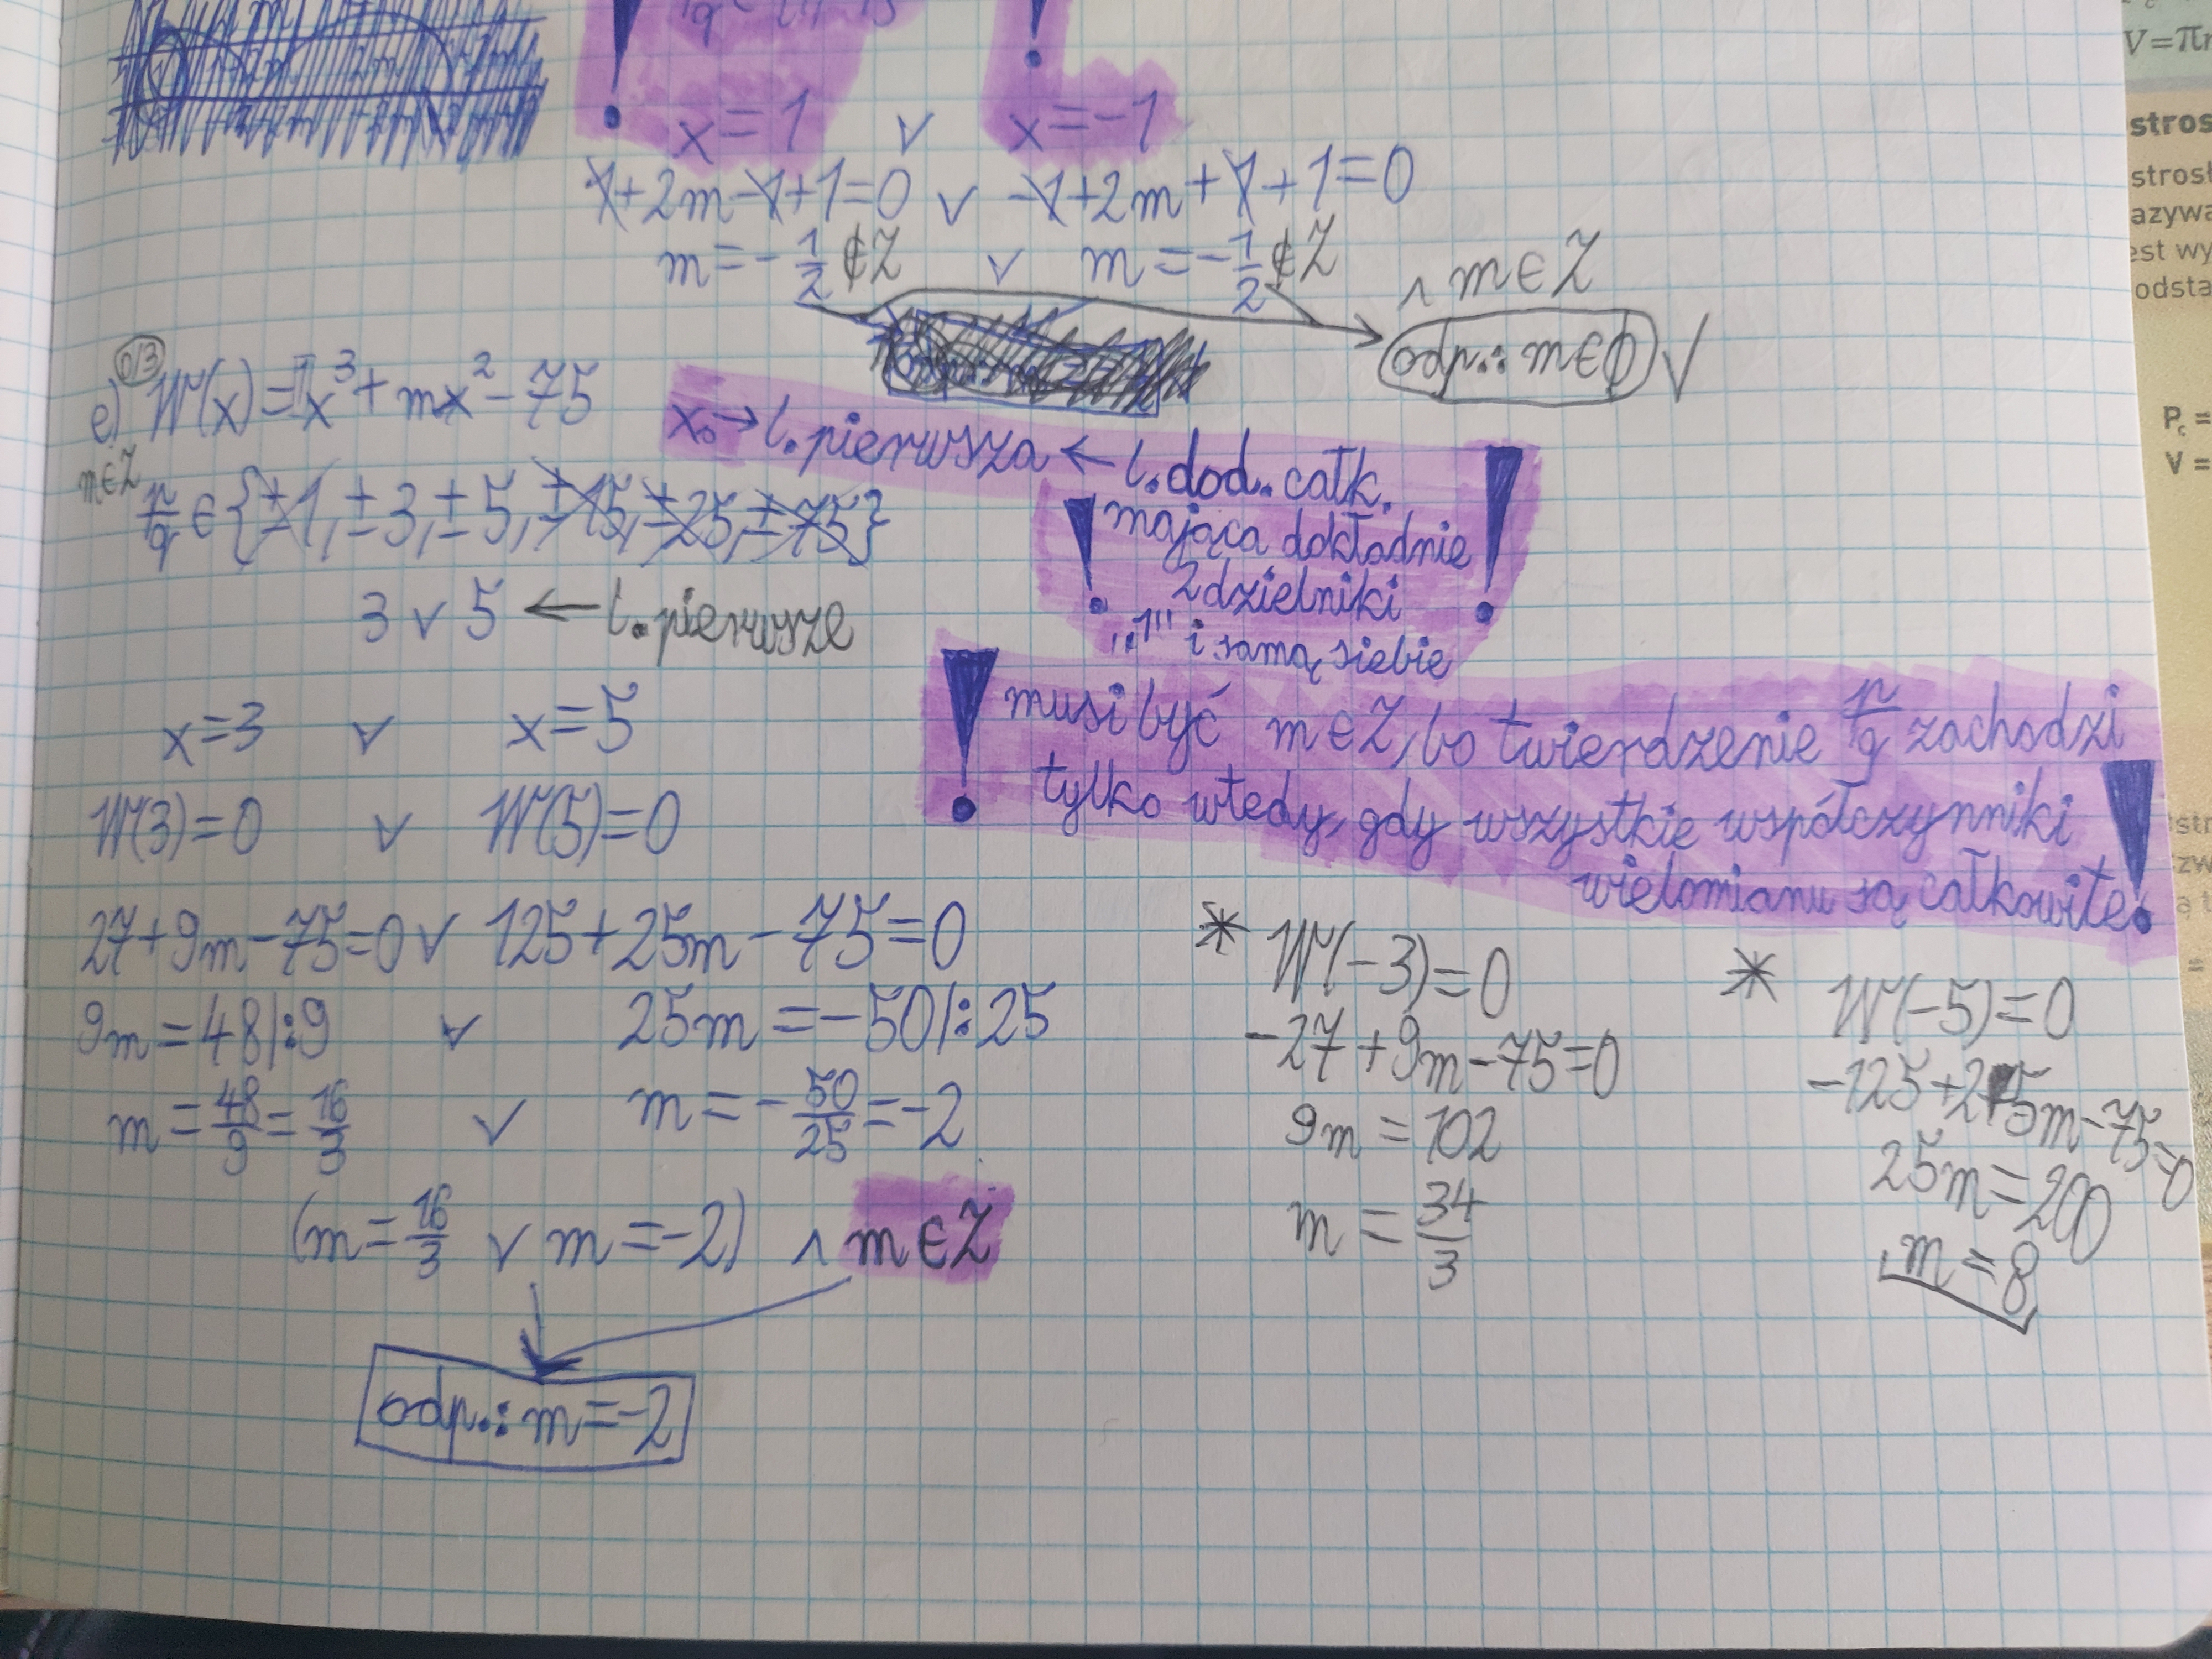 x=1 ∨ x=-1
1+2m-1+1=0 ∨ -1+2m+1+1=0
m=-1/2 ∉Z ∨ m=-1/2 ∉Z ∧ m∈Z
odp.: m∈ϕ √
e) W(x)=1x³+mx²-75
m∈Z
x₀→l.pierwsza←l.dod.całk.
mająca dokładnie
2dzielniki
„1" i samą siebie
p/q∈{±1,±3,±5,±15,±25,±75}
3∨5←l.pierwsze
x=3 ∨ x=5
musi być m∈Z, bo twierdzenie p/q zachodzi
tylko wtedy, gdy wszystkie współczynniki
wielomianu są całkowite!
W(3)=0 ∨ W(5)=0
27+9m-75=0 ∨ 125+25m-75=0
9m=48|:9 ∨ 25m=-50|:25
m=48/9=16/3 ∨ m=-50/25=-2
(m=16/3 ∨ m=-2) ∧ m∈Z
odp.: m=-2
* W(-3)=0
-27+9m-75=0
9m=102
m=34/3
* W(-5)=0
-125+25m-75=0
25m=200
m=8
V=πr
stros
strosł
azywa
est wy
odsta
P_c =
V =